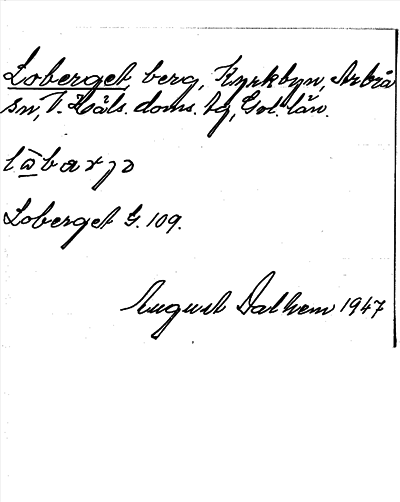 Loberget, berg, Kyrkbyn, Arbrå
sn, V. Häls. doms. tg, Gvl. län.
Loberget G. 109.
August Dalhem 1947